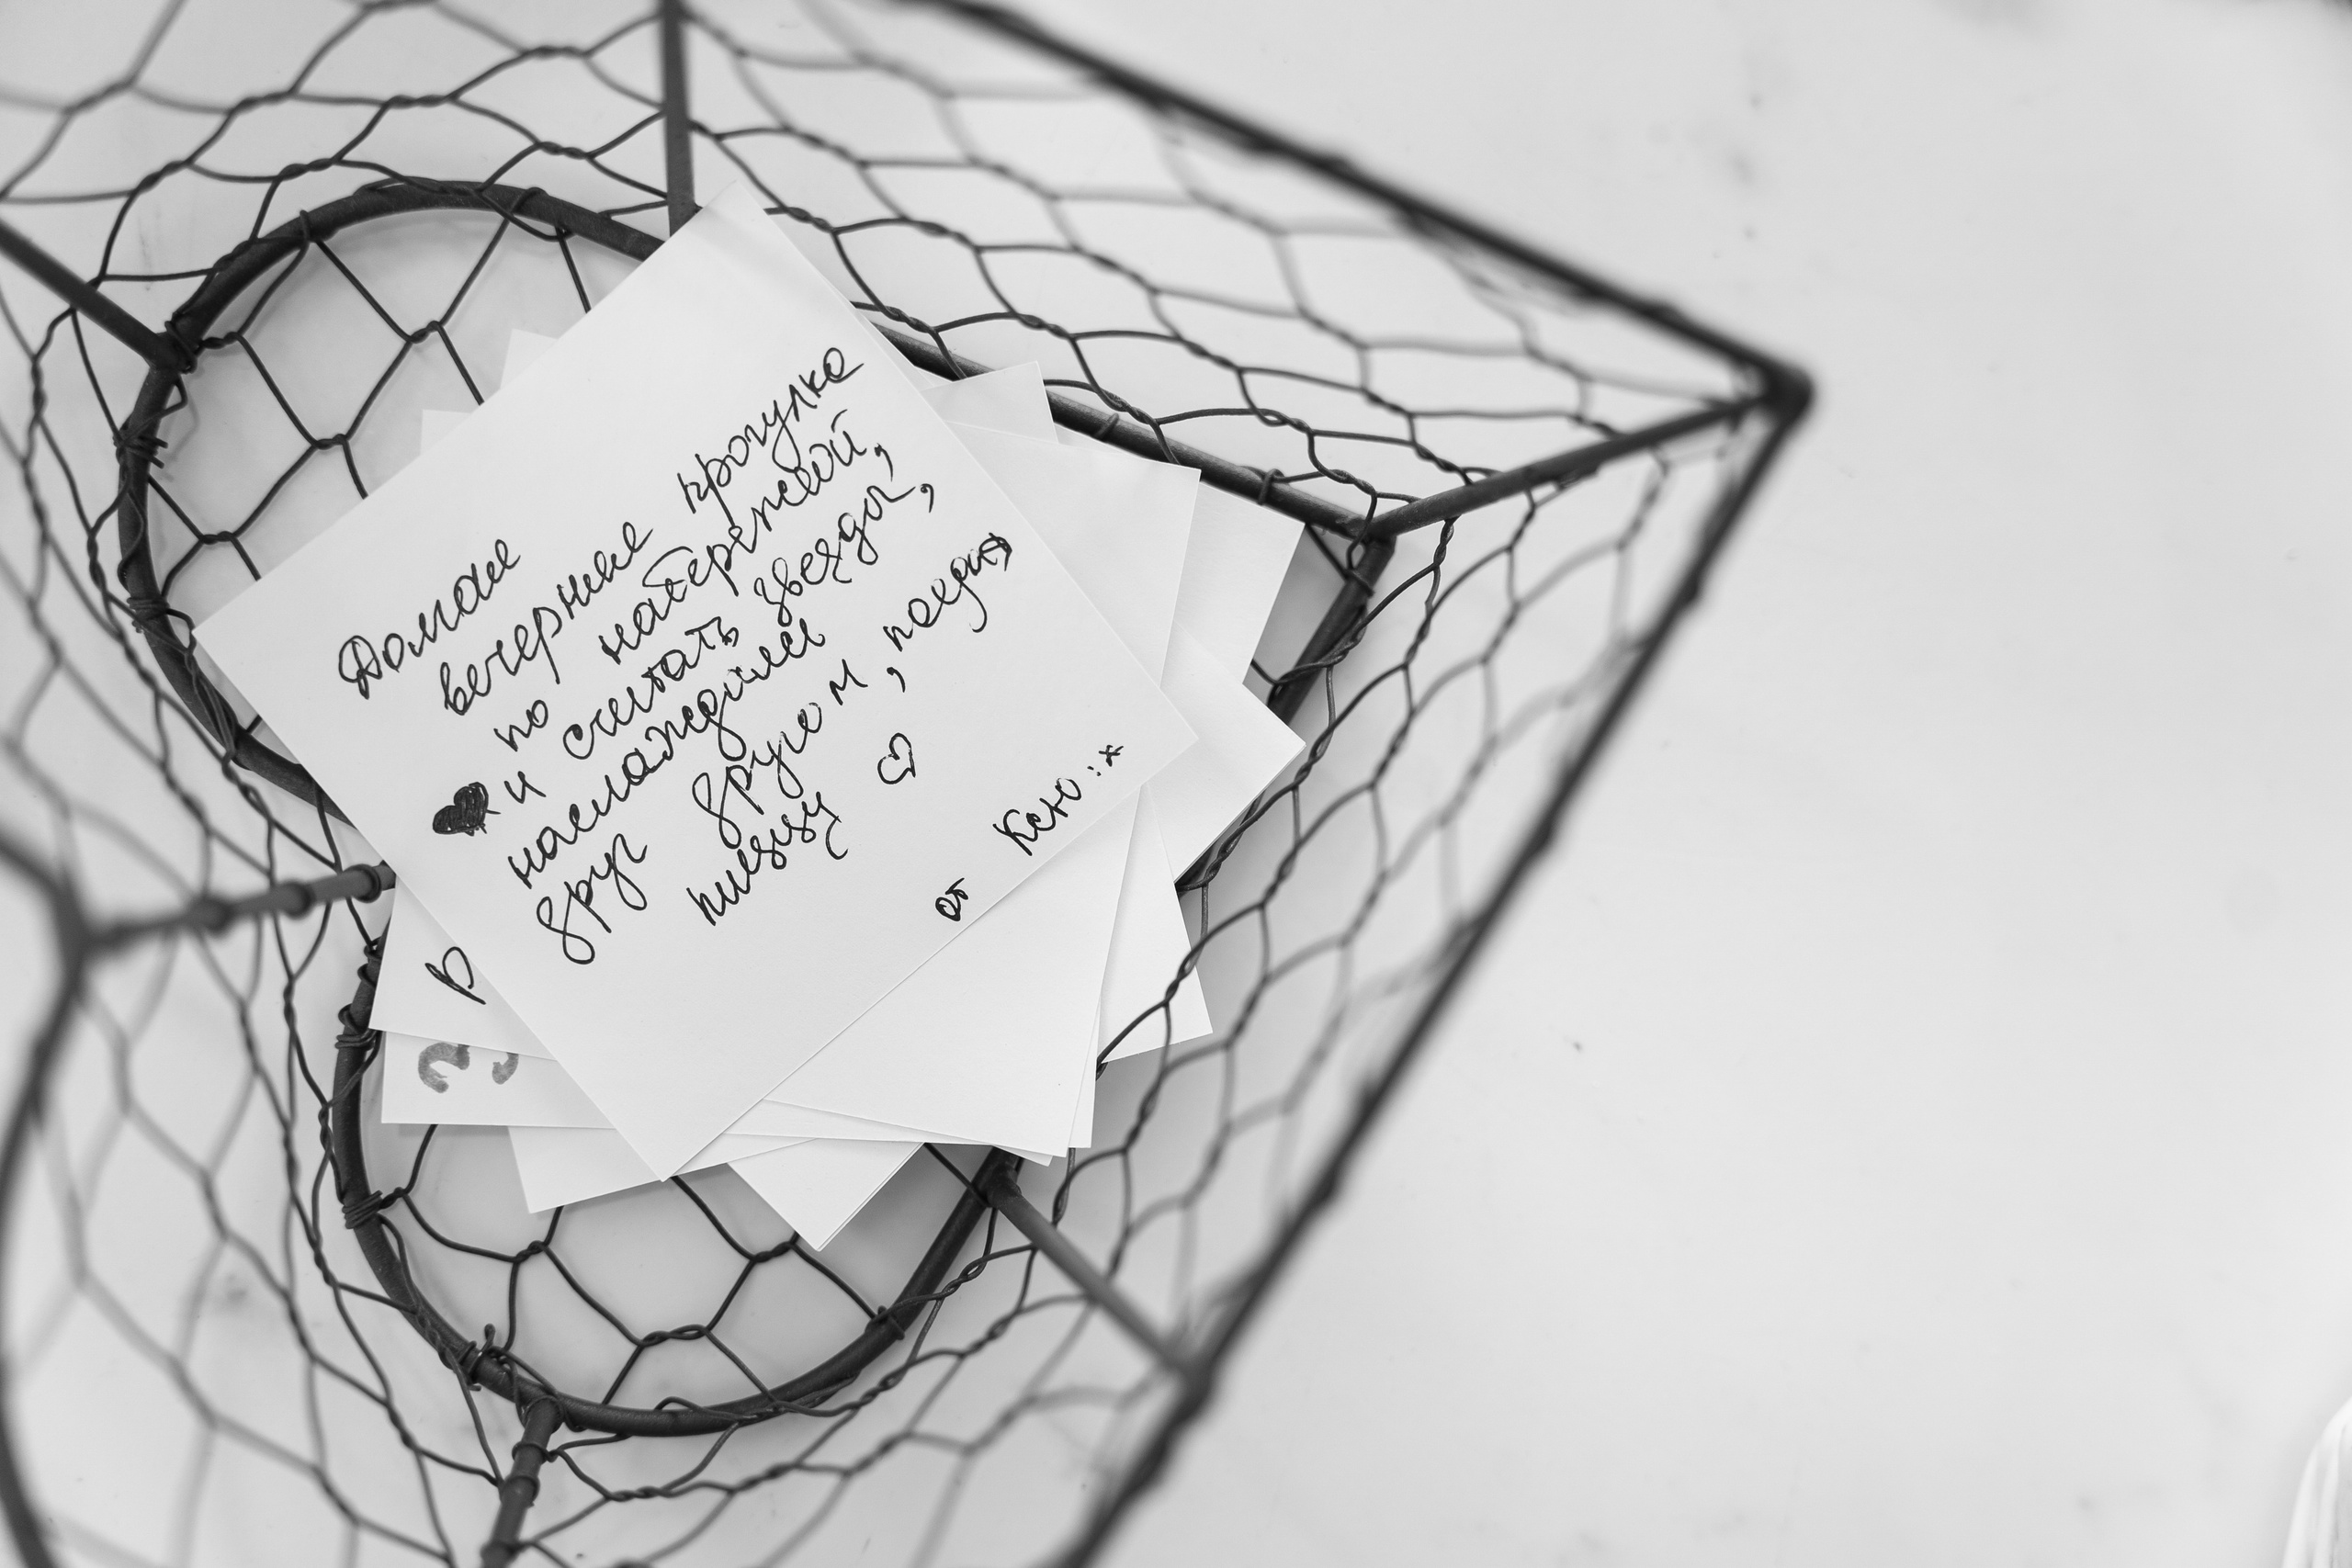 Долгие
вечерние прогулки
по набережной,
и считать звезды,
наслаждаться
друг другом, поедая
пиццу ♡
от Ксю :*